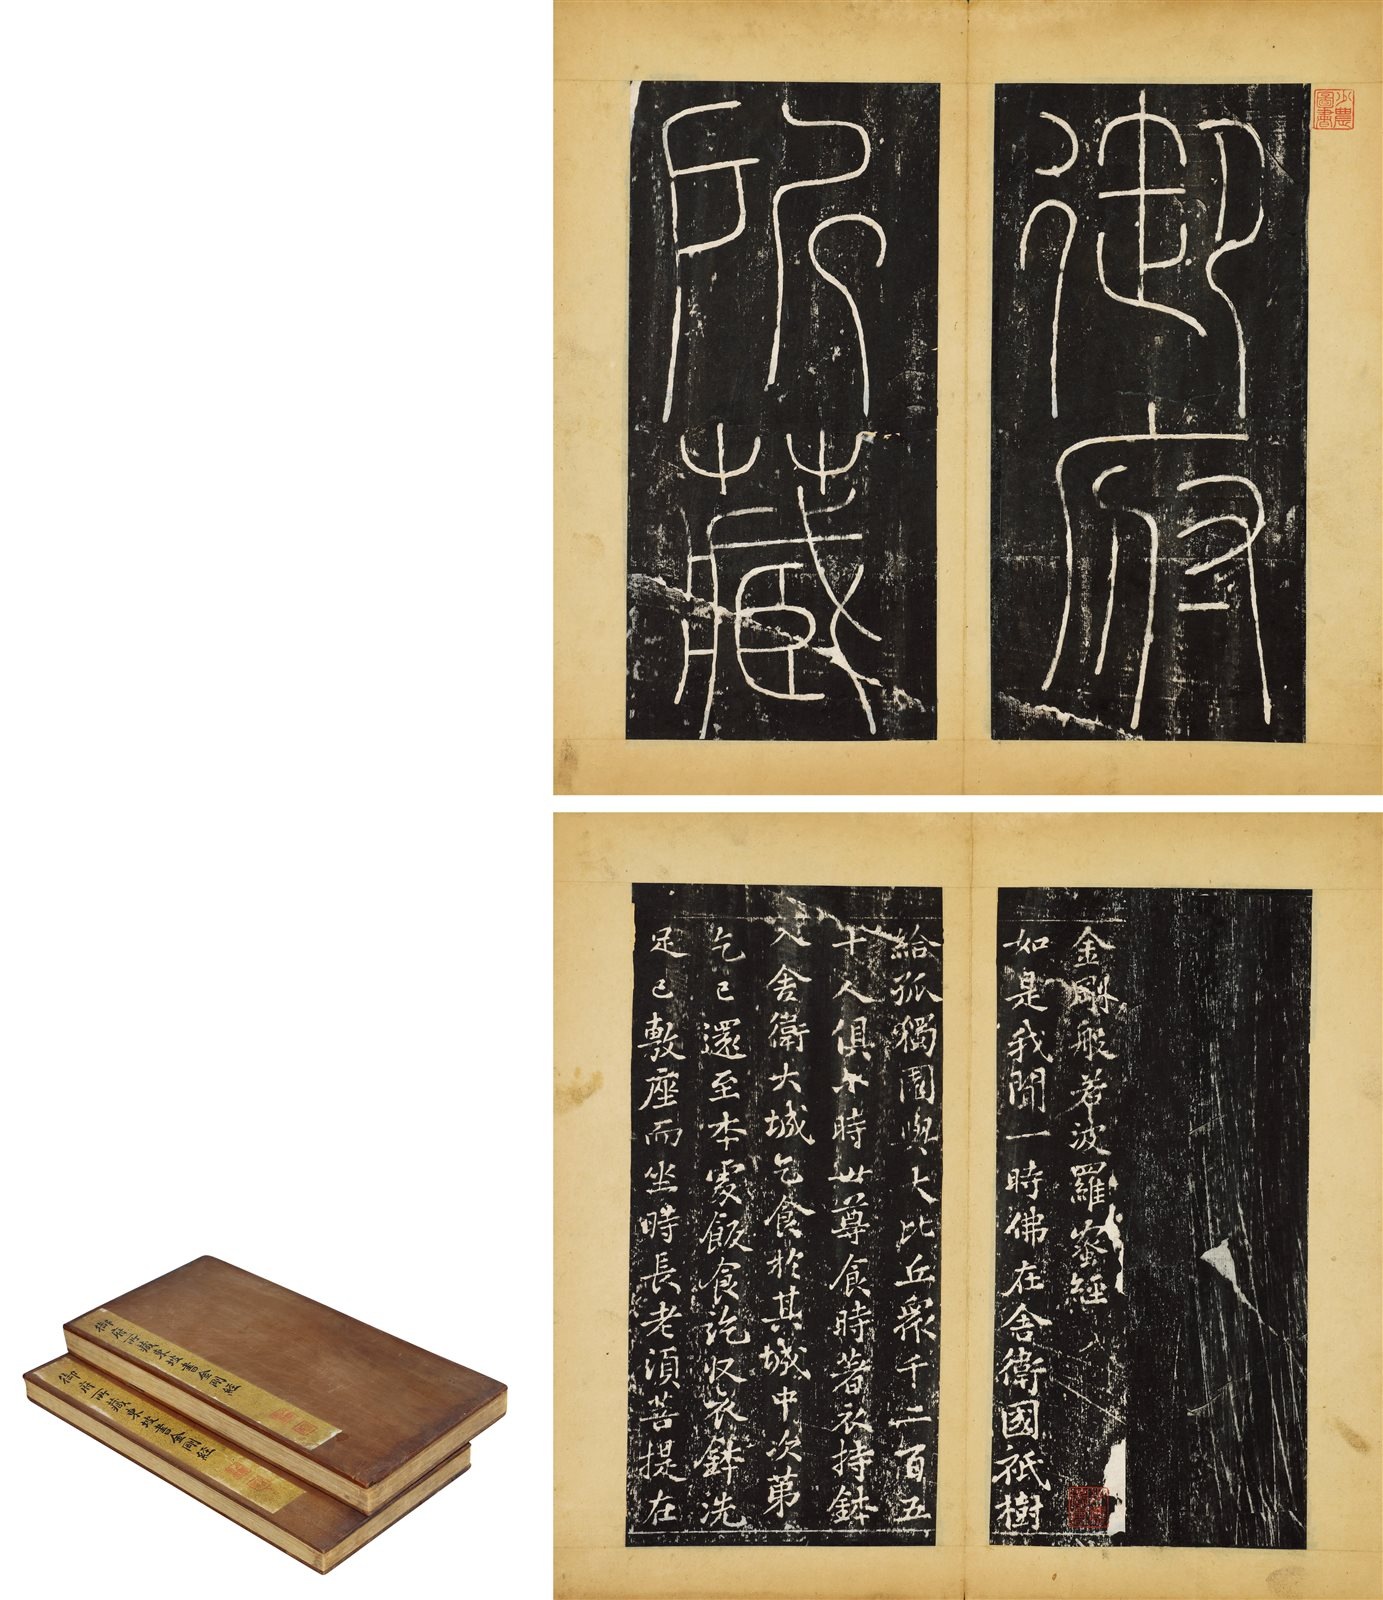 御府
所藏
少農
圖書
金剛般若波羅蜜經
如是我聞一時佛在舍衛國祇樹
給孤獨園與大比丘衆千二百五
十人俱尒時世尊食時著衣持鉢
入舍衛大城乞食於其城中次第
乞已還至本處飯食訖収衣鉢洗
足已敷座而坐時長老湏菩提在
御府所藏東坡書金剛經
御府所藏東坡書金剛經